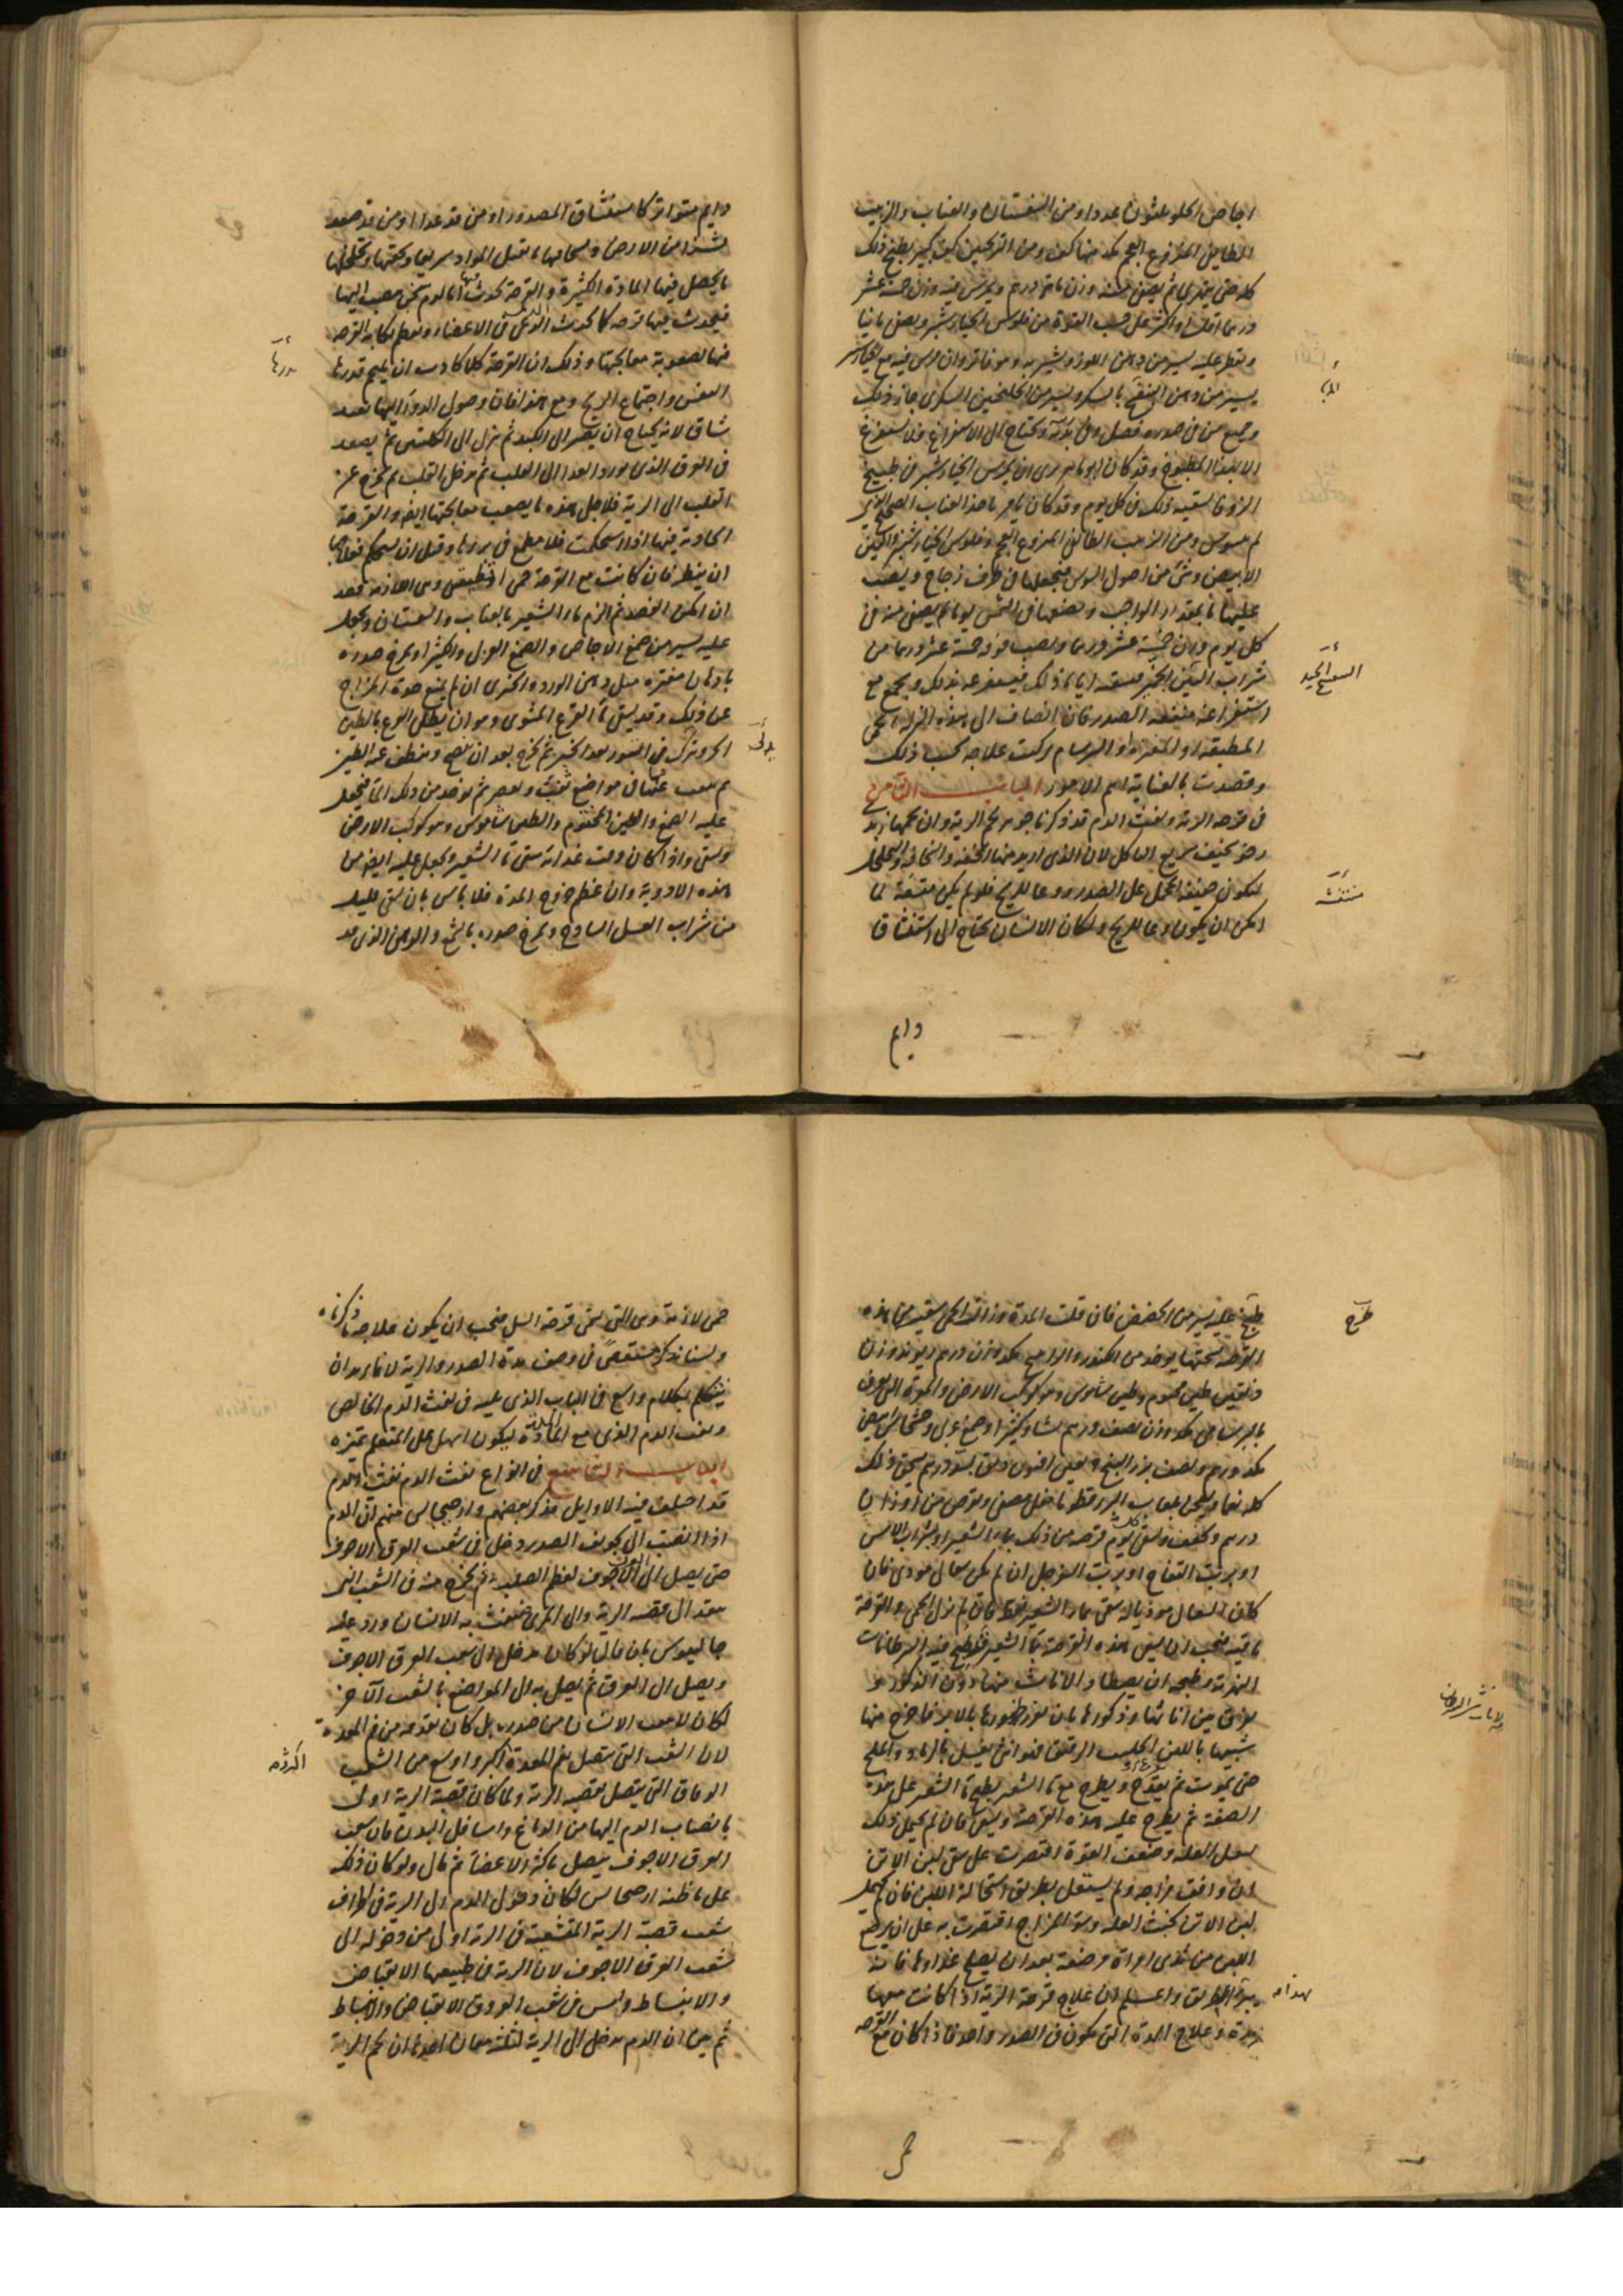 اجاص الحلو ثلثون عددا ومن السفستان والعناب والزبيب
الطايفى المنزوع العجم بكد منها كف ومن الترنجبين كف كبير يطبخ ذلك
كله حتى يتهرى ثم يصفى منه وزن ماية درهم ويمرس فيه وزن خمسة عشر
درهما اقل او اكثر على حسب القوة من فلوس الخيار شنبر ويصفى ثانيا
ويقطر عليه يسير من دهن اللوز ويشربه وهو فاتر وان مرس فيه مع الخيار شنبر
يسير من دهن البنفسج بالسكر ويسير من الجلنجبين السكرى جاز ذلك
وجميع من فى صدره فضل وفى بدنه ويحتاج الى الاستفراغ فلا يستفرغ
الا بهذا المطبوخ وقد كان ابو ماهر يرى ان يمرس الخيار شنبر فى طبيخ
الزوفا يسقيه ذلك فى كل يوم وقد كان يامر باخذ العناب الصحيح الذى
لم يسوس ومن الزبيب الطايفى المنزوع العجم وفلوس الخيار شنبر والتين
الابيض وشئ من اصول السوس فيجعلها فى ظرف زجاج ويصب
عليها ماء بمقدار الواجب ويضعها فى الشمس يوما ثم يصفى منه فى
كل يوم وزن خمسة عشر درهما ويصب فوقه خمسة عشر درهما من
شراب التين الخبز فيسقيه اياه ذلك فيستفرغه بذلك ويجمع مع
استفراغه منفعة الصدر فان انضاف الى هذه النزلة الحمى
المطبقة او المفترة او البرسام ركبت علاجه بحسب ذلك
وقصدت بالعناية اهم الامور الباب الثامن
فى قرحة الرية ونفث الدم قد ذكرنا جوهر لحم الرية وان لحمها زبد
رخو سخيف سريع التاكل لان الذى اريد منها الخفة والسخافة والتخلخل
لتكون خفيفة المحمل على الصدر ووعا للريح فلو لم يكن متسعة لما
امكن ان يكون وعا للريح ولكان الانسان يحتاج الى استنشاق
دايم
دايم متواتر كاستنشاق المصدور او من قد عدا او من قد صعد
نشزا من الارض ولسخافتها تقبل المواد سريعا ولخفتها وتخلخلها
ما يحصل فيها المادة الكثيرة والقرحة تحدث فيها اما لدم سخن ينصب اليها
فيحدث فيها قرحة كما تحدث الدماميل فى الاعضاء ويعظم نكاية القرحة
فيها لصعوبة معالجتها وذلك ان القرحة كلما كادت ان يلتحم قدرها
النفس واجتماع الريح ومع هذا فان وصول الدواء اليها بعيد
شاق لانه يحتاج ان يصير الى الكبد ثم ينزل الى الكليتين ثم يصعد
فى العرق الذى يورد الغذا الى القلب ثم يدخل القلب ثم يخرج عن
القلب الى الرية فلاجل هذه ما يصعب معالجتها ايضا والقرحة
الحادثة فيها اذا استحكمت فلا مطمع فى برءها وقبل ان يستحكم فعلاجها
ان ينظر فان كانت مع القرحة حمى الدق وهى اللازمة فصد
ان امكن الفصد ثم الزم ماء الشعير بالعناب والسفستان ويجعل
عليه يسير من صمغ الاجاص والصمغ العربى والكثيرا ويمرخ صدره
بادهان مفترة مثل دهن الورد والخيرى ان لم يمنع حدة المزاج
عن ذلك وقد يسقى ماء القرع المشوى وهو ان يطلى القرع بالطين
الحر ويترك فى التنور بعد الخبز ثم يخرج بعد ان نضج وينظف عنه الطين
ثم يثقب عنها فى مواضع ثقب ويعصر ثم يوخذ من ذلك الماء فيجعل
عليه الصمغ والطين المختوم والطين شاموس وهو كوكب الارض
ويسقى واذا كان وقت غدائه سقى ماء الشعير ويجعل عليه ايضا من
هذه الادوية وان عظم خروج المدة فلا باس بان يسقى قليلا
من شراب العسل الساذج ويمرخ صدره بالشمع والدهن الذى قد
طبخ عليه يسير من الحضض فان قلت المدة وزالت الحمى سقيته من هذه
القرصة نسختها يوخذ من الكندر والدارصينى بكد وزن درهم الريوند وزن
دانقين طين مختوم وطين شاموس وهو كوكب الارض والمرة التى تعرف
بكد وزن نصف درهم نشا وكثيرا وصمغ عربى وخشخاش ابيض
بكد درهم ونصف بزر البنج دانقين افيون دانق بسد درهم يسحق ذلك
كله نعما ويعجن بلعاب البزر قطونا بخل مصفى ويقرص من وزن
درهم ونصف ويسقى كل يوم قرصة من ذلك بماء الشعير او بشراب الاس
او برب التفاح او برب السفرجل ان لم يكن سعال موذى فان
كان السعال موذيا له سقى بماء الشعير فقط فان لم تزل الحمى والقرحة
باقية فيجب ان يسقى هذه القرحة بماء الشعير قد طبخ فيه السرطانات
النهرية وطبخه ان يصطاد الاناث منها دون الذكور
يفرق بين اناثها وذكورها بان يغرز ظهورها بالابر فما خرج منها
شبيها باللبن الحليب الرقيق فهو انثى فيغسل بالرماد والملح
حتى يموت ثم يقدح ويطرح مع ماء الشعير يطبخ ماء الشعير على هذه
الصفة ثم يطرح عليه هذه القرحة ويسقى فان لم يحتمل ذلك
لطول العلة وضعف القوة اقتصرت على سقى لبن الاتن
ان وافق مزاجه ولم يستعمل بطريق استحالة اللبن فان لم يحتمل
لبن الاتن لخبث العلة وسوء المزاج اقتصرت به على ان يرضع
اللبن من ثدى امراة مرضعة بعد ان يصلح غداوها فانه
يبرء بهذا الطريق واعلم ان علاج قرحة الرية اذا كانت معها
مدة وعلاج المدة التى تكون فى الصدر واحد فاذا كان مع القرحة
حمى
حمى لازمة وهى التى تسمى قرحة السل فيجب ان يكون علاجه ما ذكرناه
ولسنا نذكر مستقصى فى وصف مدة الصدر والرية لانا نريد ان
نتكلم بكلام واسع فى الباب الذى يليه فى نفث الدم الخالص
ونفث الدم الذى مع المادة ليكون اسهل على المتعلم تميزه
الباب التاسع فى انواع نفث الدم نفث الدم
قد اختلف فيه الاوايل فذكر بعضهم وارخيجانس منهم ان الدم
اذا انصب الى تجويف الصدر دخل فى شعب العرق الاجوف
حتى يصل الى العرق الاجوف لعظم الصلب ثم يخرج منه فى الشعب التى
تنفذ الى قصبة الرية والى المرى فينفث به الانسان ورد عليه
جالينوس بان قال لو كان يدخل الى شعب العرق الاجوف
ويصل الى العرق ثم يصل به الى المواضع بالشعب الاخر
لكان لا ينفث الانسان من صدره بل كان يقذفه من فم المعدة
لان الشعب التى تتصل بفم المعدة اكبر واوسع من الشعب
الدقاق التى يتصل بقصبة الرية ولما كان قصبة الرية اولى
بانصباب الدم اليها من الدماغ واسافل البدن فان شعب
العرق الاجوف يتصل باكثر الاعضاء ثم قال ولو كان ذلك
على ما ظنه ارخيجانس لكان وصول الدم الى الرية فى اطراف
شعب قصبة الرية المنقسمة فى الرية اولى من دخوله الى
شعب العرق الاجوف لان الرية فى طبيعتها الانقباض
والانبساط وليس فى شعب العروق الانقباض والانبساط
ثم بين ان الدم يدخل الى الرية لثلثة معان احدها ان لحم الرية